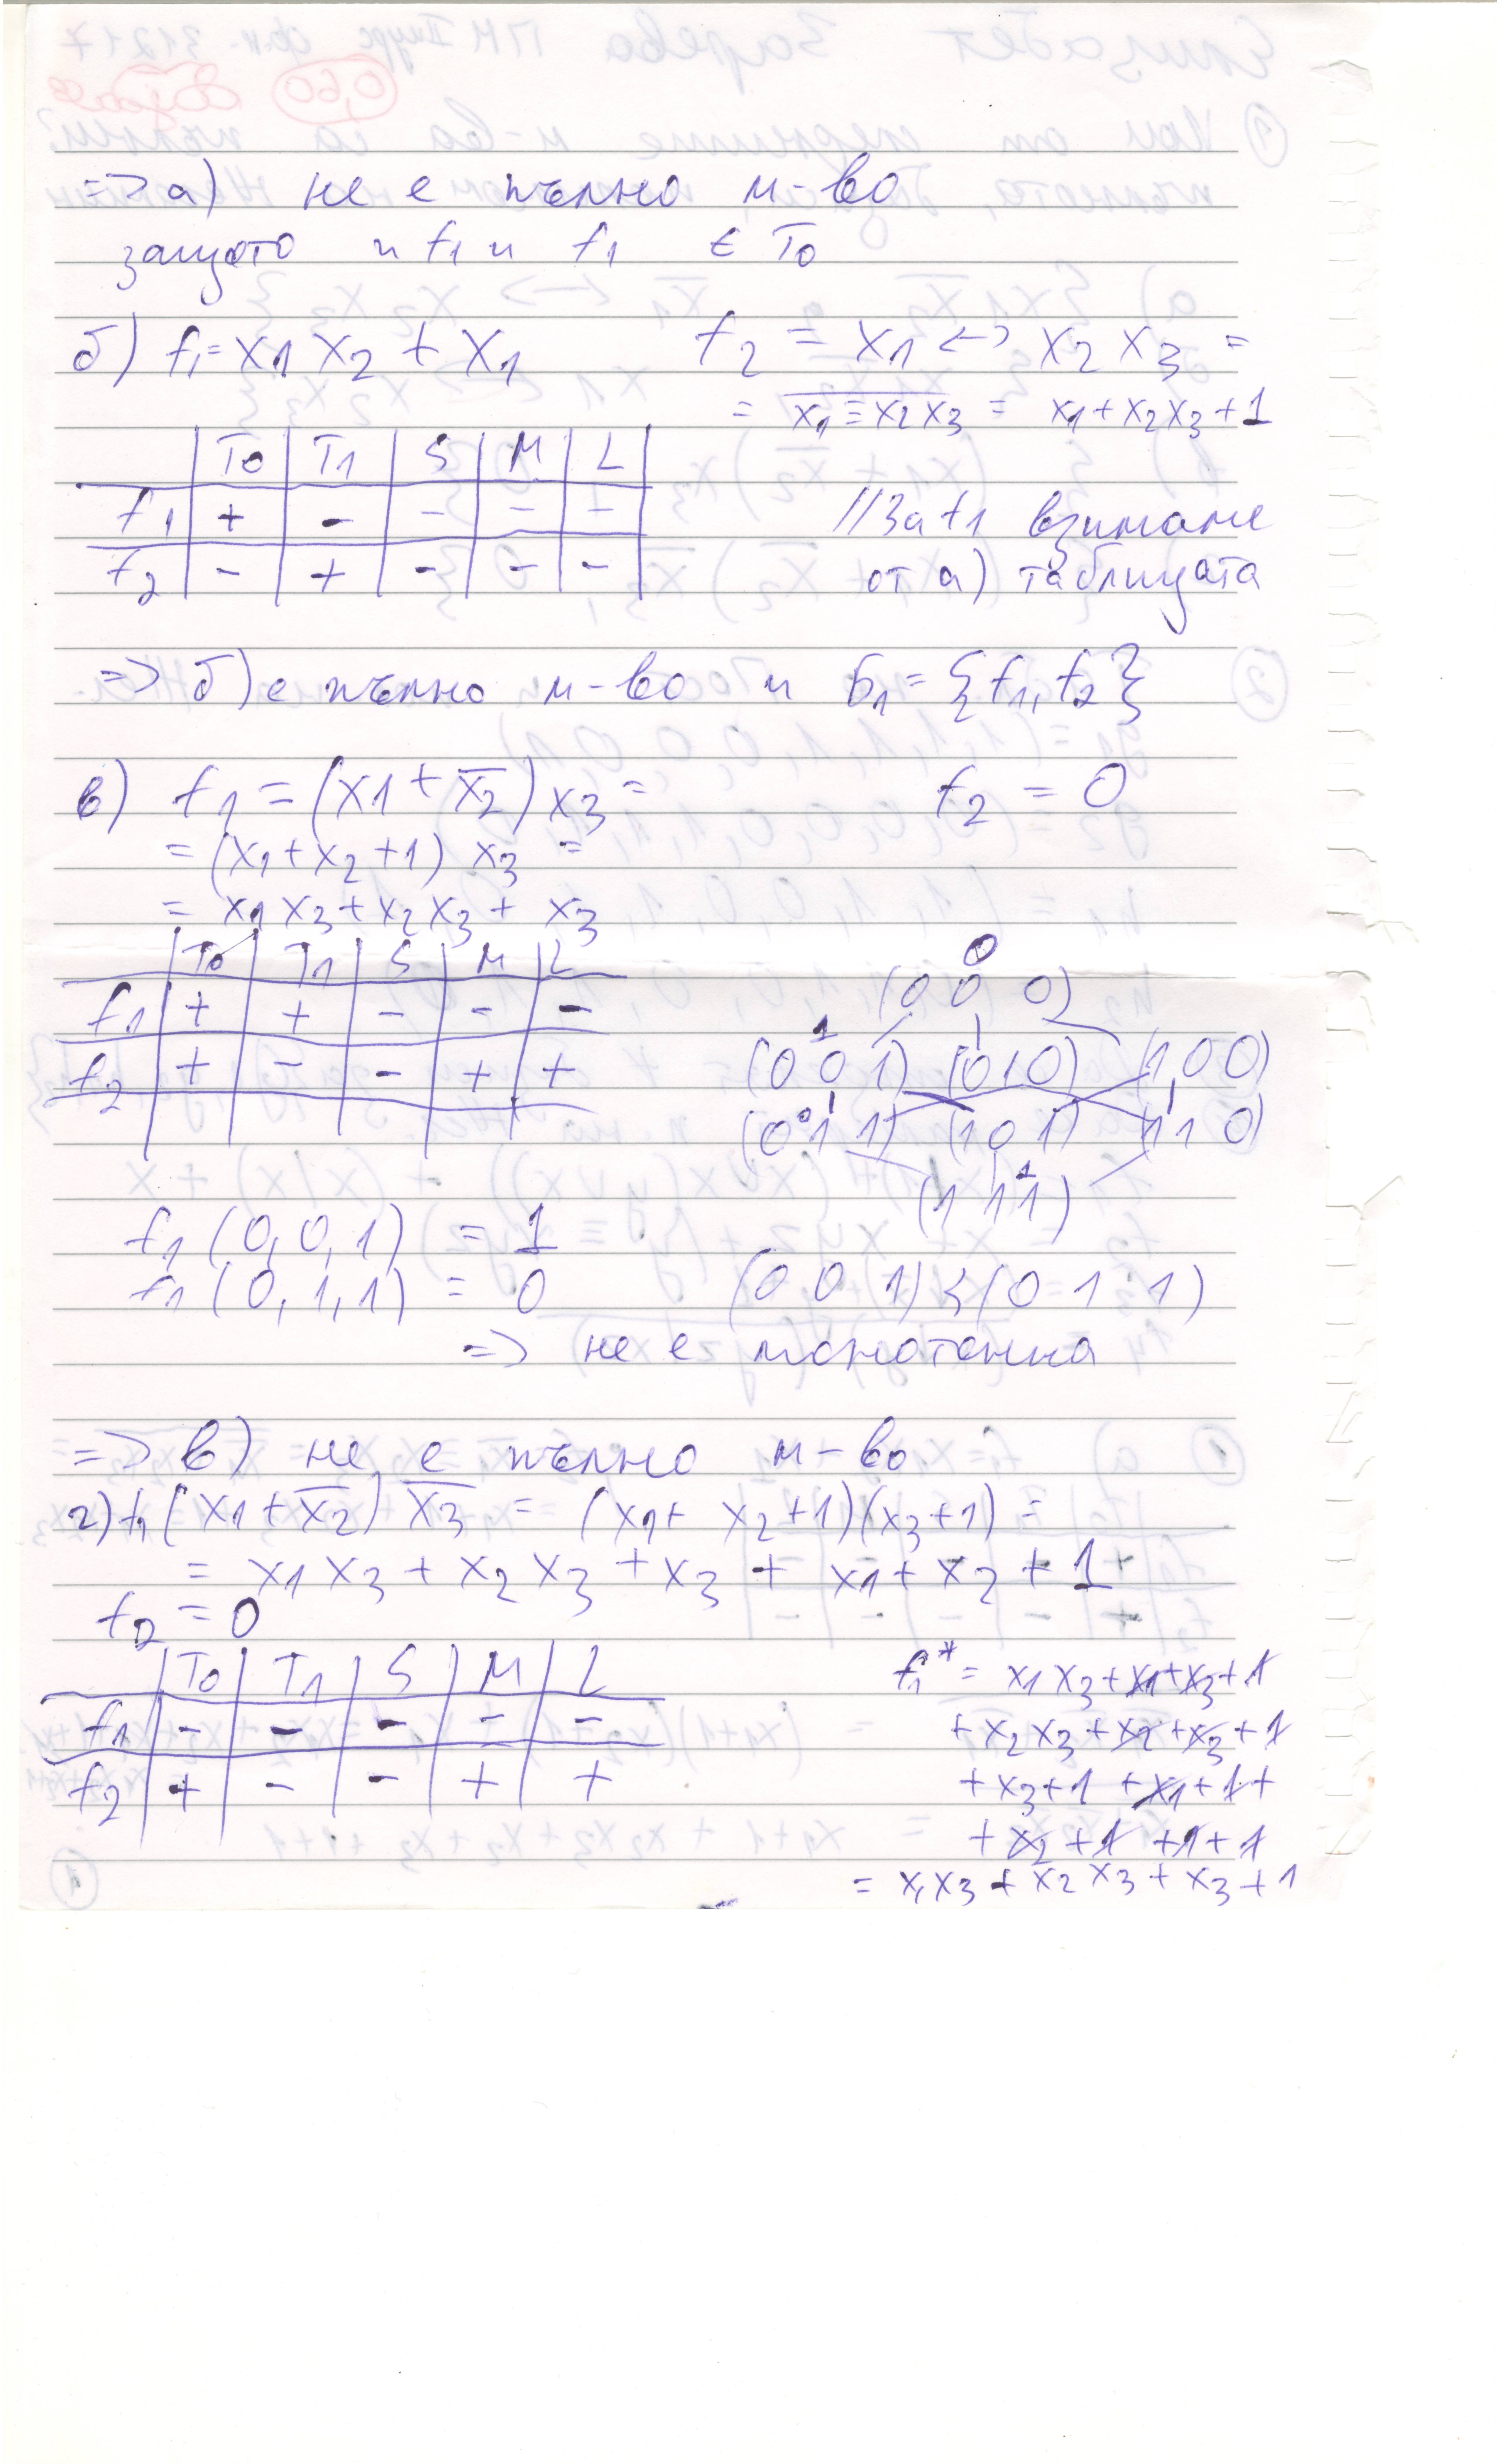 => а) не е пълно м-во
защото и f1 и f1 ∈ T0
б) f1 = x1 x2 + x1 f2 = x1 <-> x2 x3 =
= x1 ≡ x2 x3 = x1 + x2 x3 + 1
T0 T1 S M L
f1 + - - - -
f2 - + - - -
//За f1 взимаме
от а) таблицата
=> б) е пълно м-во и Б1 = {f1, f2}
в) f1 = (x1 + x̅2) x3 = f2 = 0
= (x1 + x2 + 1) x3 =
= x1 x3 + x2 x3 + x3
T0 T1 S M L
f1 + + - - -
f2 + - - + +
0
(0 0 0)
1
(0 0 1) (0 1 0) (1 0 0)
0
(0 1 1) (1 0 1) (1 1 0)
1
(1 1 1)
f1 (0, 0, 1) = 1
f1 (0, 1, 1) = 0 (0 0 1) < (0 1 1)
=> не е монотонна
=> в) не е пълно м-во
г) f1 (x1 + x̅2) x̅3 = (x1 + x2 + 1)(x3 + 1) =
= x1 x3 + x2 x3 + x3 + x1 + x2 + 1
f2 = 0
T0 T1 S M L
f1 - - - - -
f2 + - - + +
f1* = x1 x3 + x1 + x3 + 1
+ x2 x3 + x2 + x3 + 1
+ x3 + 1 + x1 + 1 +
+ x2 + 1 + 1 + 1
= x1 x3 + x2 x3 + x3 + 1